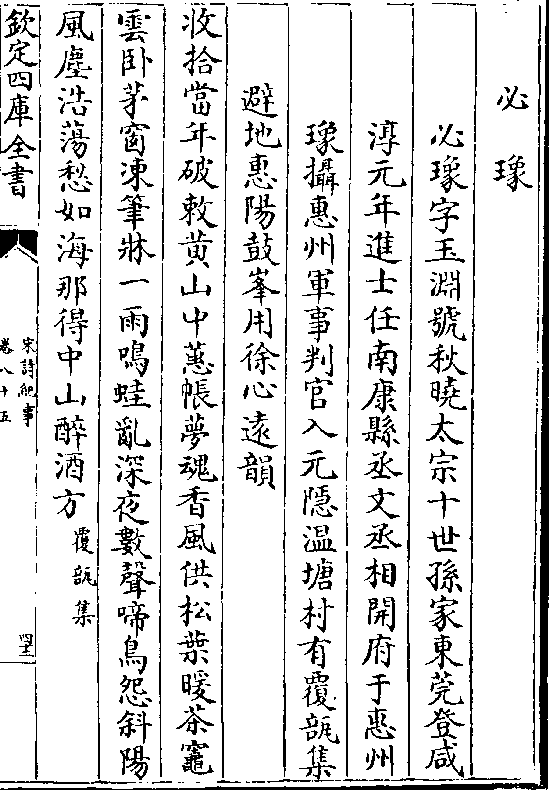 必𤩪
必𤩪字玉淵號秋曉太宗十世孫家東莞登咸
淳元年進士任南康縣丞文丞相開府于惠州
𤩪攝惠州軍事判官入元隱温塘村有覆瓿集
避地惠陽鼓峯用徐心遠韻
收拾當年破敕黄山中蕙帳夢魂香風供松葉暖茶竈
雲卧茅窗凍筆牀一雨鳴蛙亂深夜數聲啼鳥怨斜陽
風塵浩蕩愁如海那得中山醉酒方 覆瓿集
欽定四庫全書
宋詩紀事
卷八十五